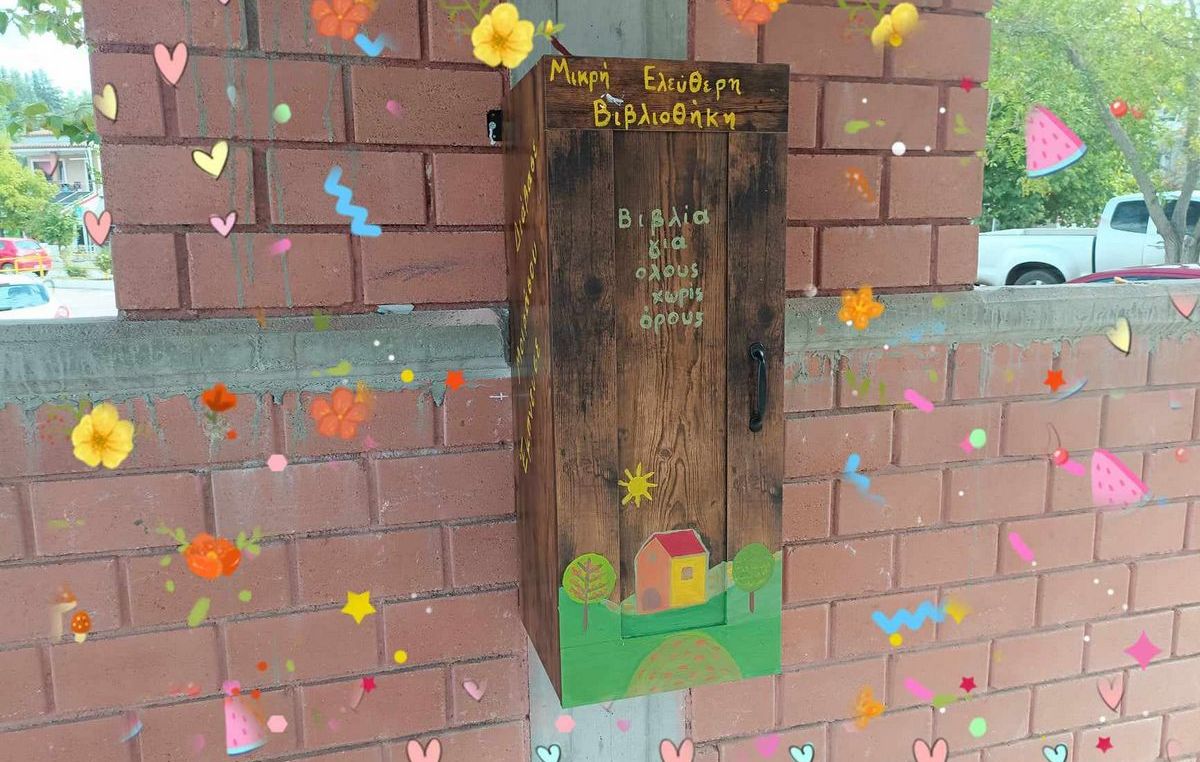 Μικρή Ελεύθερη
Βιβλιοθήκη
Βιβλία
για
ολους
χωρίς
όρους